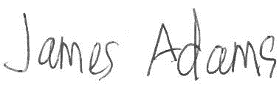 James Adams